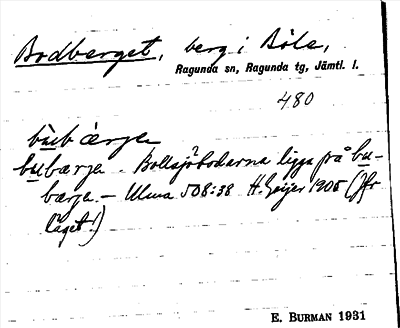 Bodberget, berg i Böle,
Ragunda sn, Ragunda tg, Jämtl. l.
480
bùbærje
bubærje. Bollsjöbodarna ligga på bu-
bærje. – Ulma 508:38 H. Geijer 1905 (Jfr
läget!)
E. BURMAN 1931